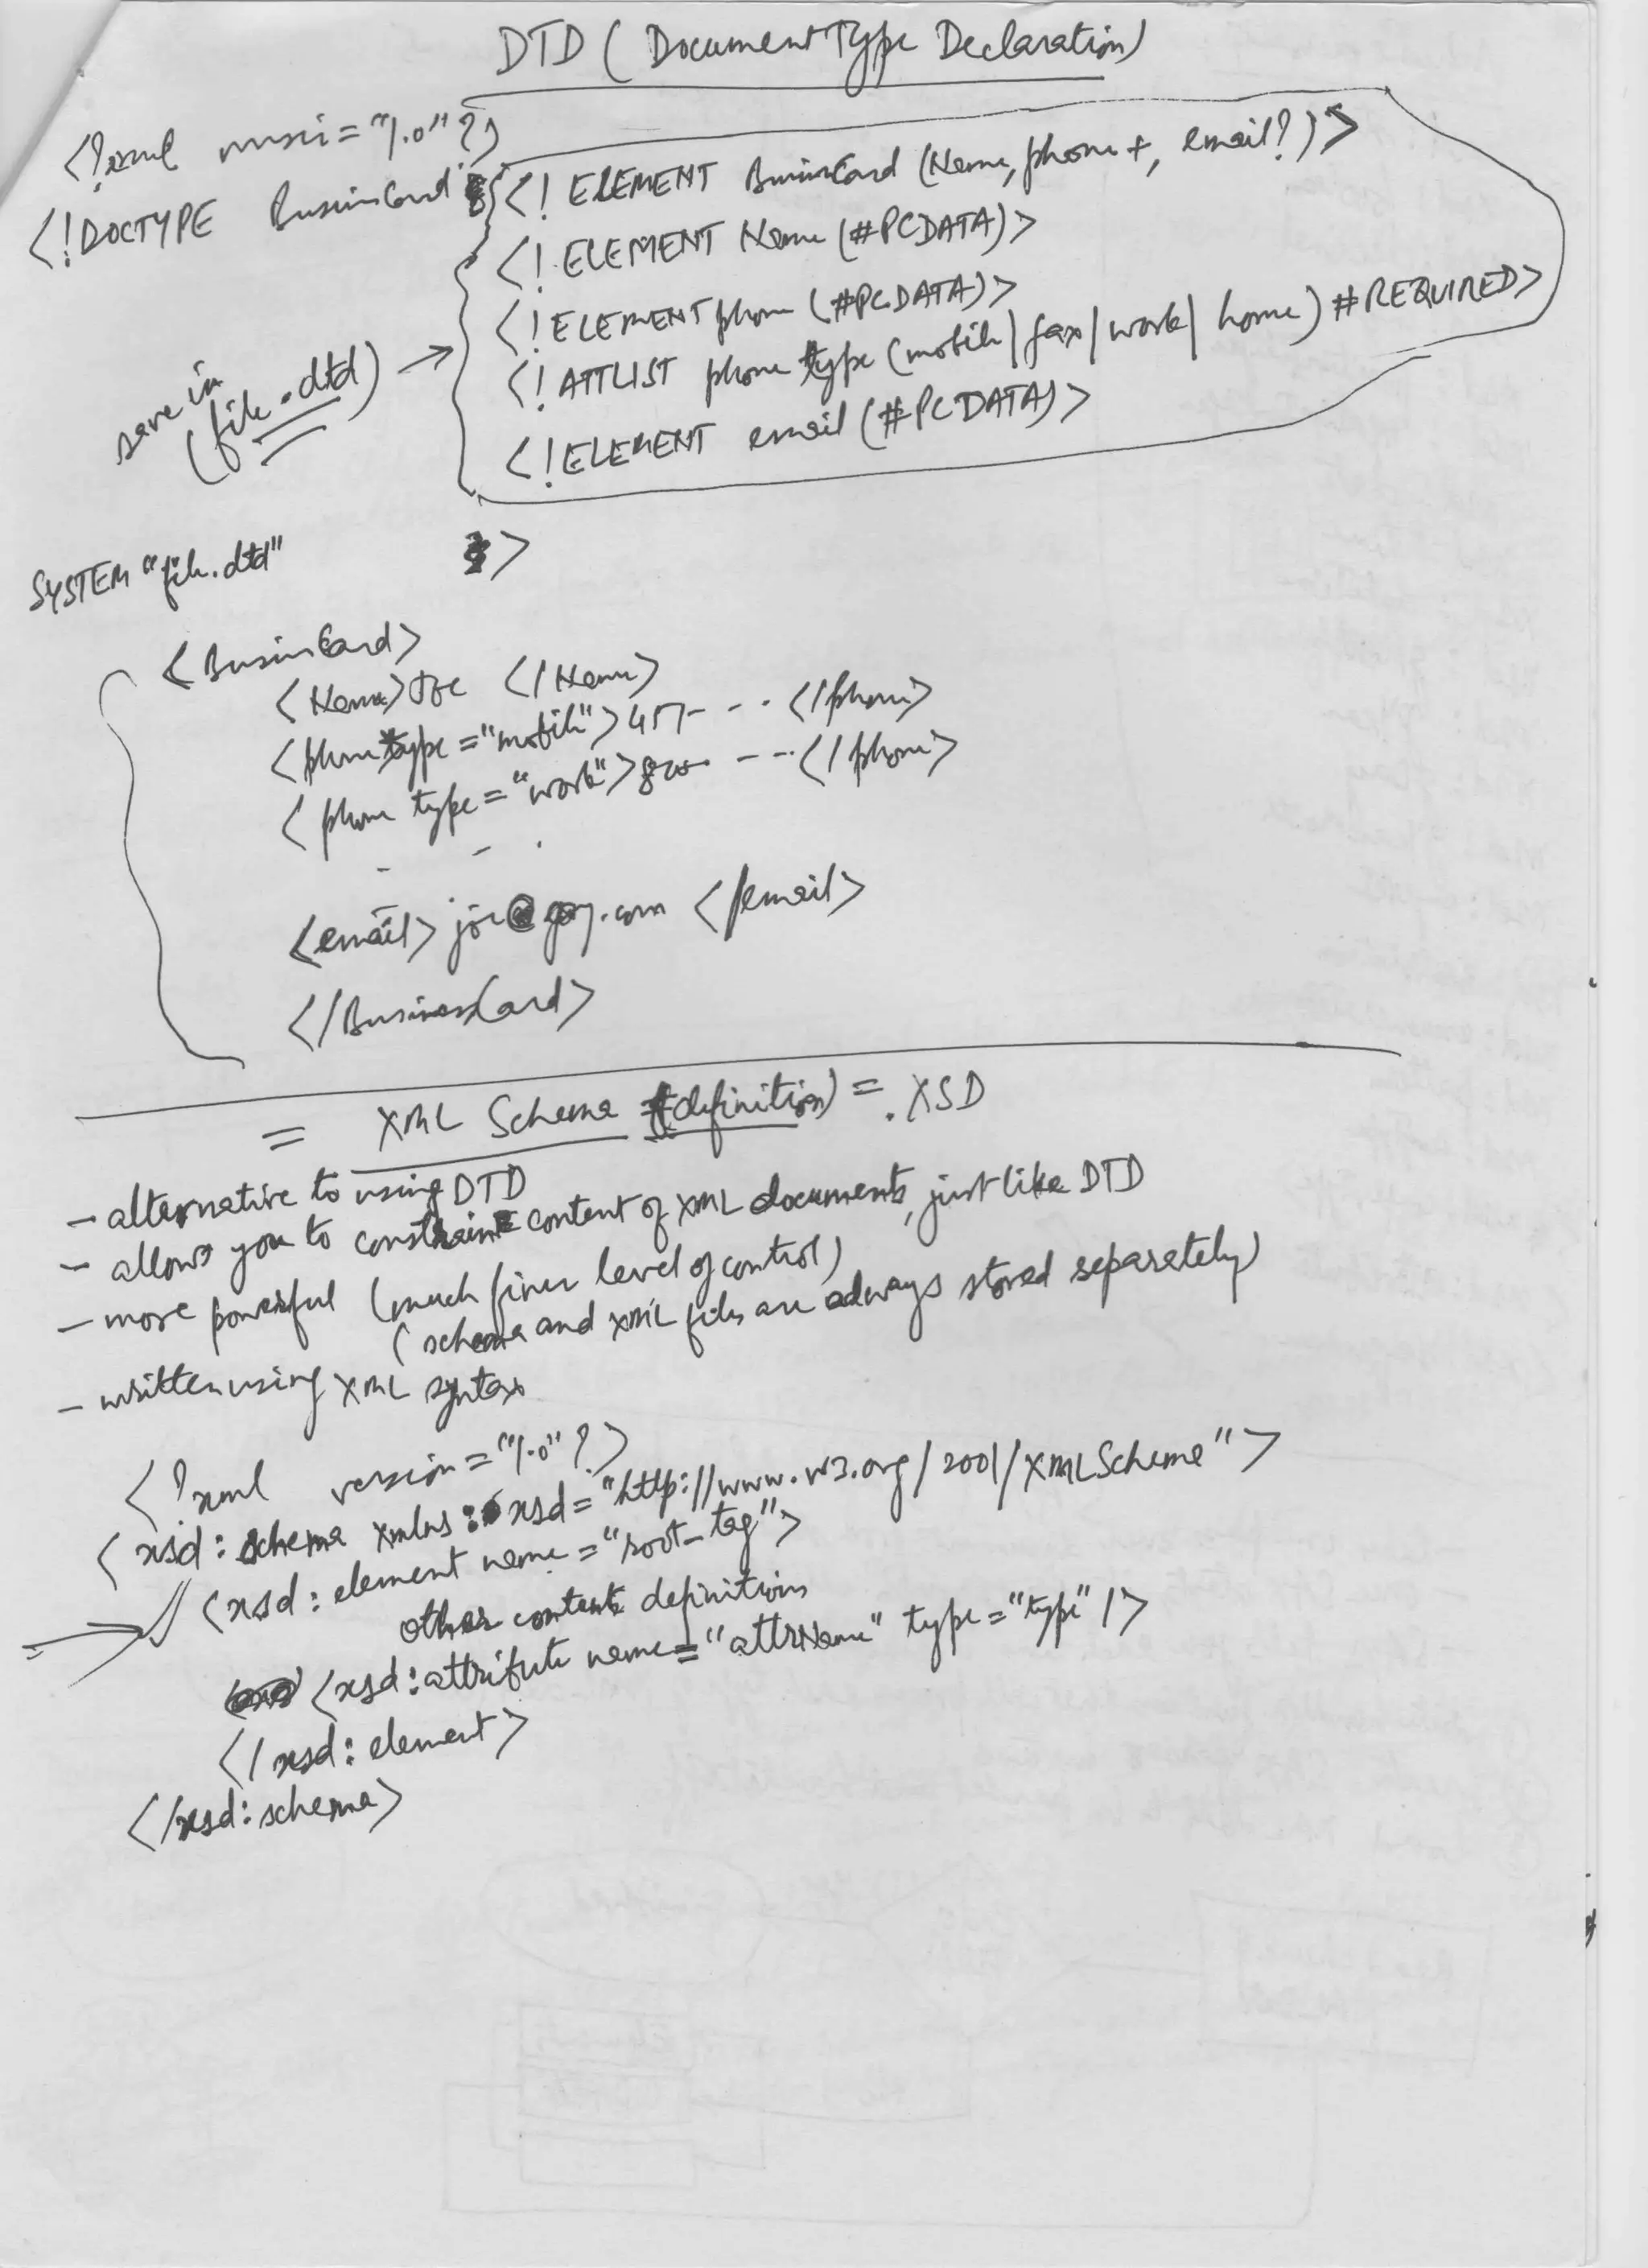 DTD (Document Type Declaration)
<?xml version="1.0"?>
<!DOCTYPE BusinessCard [ <! ELEMENT BusinessCard (Name, phone+, email?)>
<! ELEMENT Name (#PCDATA)>
<! ELEMENT phone (#PCDATA)>
<! ATTLIST phone type (mobile|fax|work|home) #REQUIRED>
<!ELEMENT email (#PCDATA)>
save in
(file.dtd) →
SYSTEM "file.dtd"
]>
<BusinessCard>
<Name> Joe </Name>
<phone type="mobile">417- - - </phone>
<phone type="work">800- - - </phone>
- - -
<email> joe@.com </email>
</BusinessCard>
= XML Schema (definition) = .XSD
- alternative to using DTD
- allows you to constraint content of XML documents, just like DTD
- more powerful (much finer level of control)
(schema and XML files are always stored separately)
- written using XML syntax
<?xml version="1.0"?>
<xsd:schema xmlns:xsd="http://www.w3.org/2001/XMLSchema">
<xsd:element name="root-tag">
other content definitions
<xsd:attribute name="attrName" type="type" />
</xsd:element>
</xsd:schema>